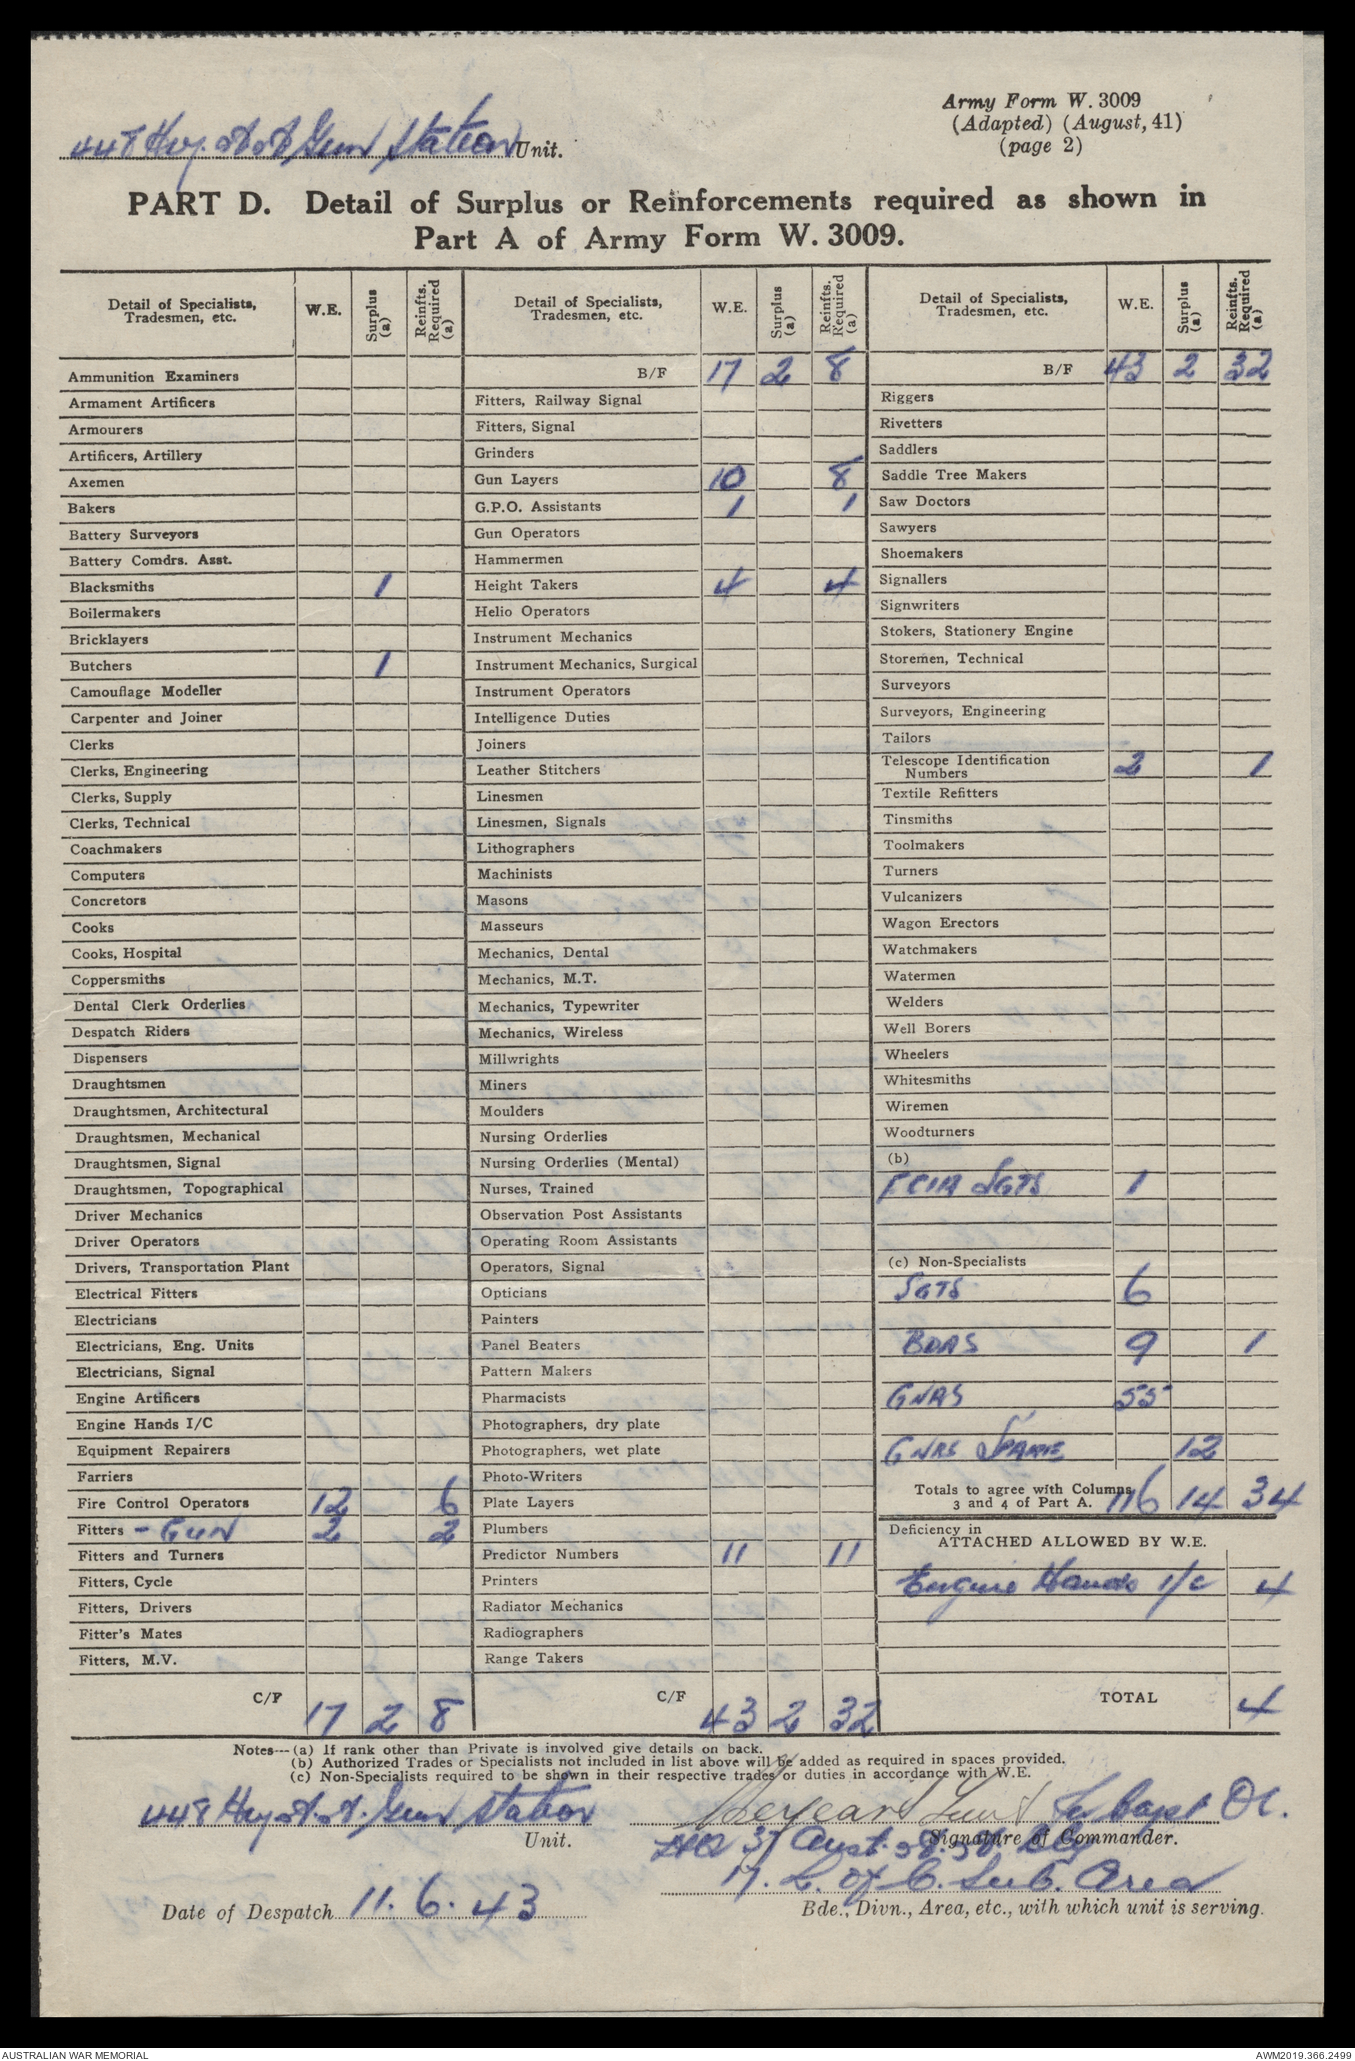 Army Form W. 3009
(Adapted) (August, 41)
(page 2)
448 Hvy. A A Gun Station Unit.
PART D. Detail of Surplus or Reinforcements required as shown in
Part A of Army Form W. 3009.
Detail of Specialists, Tradesmen, etc. W.E. Surplus (a) Reinfts. Required (a)
Ammunition Examiners
Armament Artificers
Armourers
Artificers, Artillery
Axemen
Bakers
Battery Surveyors
Battery Comdrs. Asst.
Blacksmiths 1
Boilermakers
Bricklayers
Butchers 1
Camouflage Modeller
Carpenter and Joiner
Clerks
Clerks, Engineering
Clerks, Supply
Clerks, Technical
Coachmakers
Computers
Concretors
Cooks
Cooks, Hospital
Coppersmiths
Dental Clerk Orderlies
Despatch Riders
Dispensers
Draughtsmen
Draughtsmen, Architectural
Draughtsmen, Mechanical
Draughtsmen, Signal
Draughtsmen, Topographical
Driver Mechanics
Driver Operators
Drivers, Transportation Plant
Electrical Fitters
Electricians
Electricians, Eng. Units
Electricians, Signal
Engine Artificers
Engine Hands I/C
Equipment Repairers
Farriers
Fire Control Operators 12 6
Fitters - GUN 2 2
Fitters and Turners
Fitters, Cycle
Fitters, Drivers
Fitter's Mates
Fitters, M.V.
C/F 17 2 8
Detail of Specialists, Tradesmen, etc. W.E. Surplus (a) Reinfts. Required (a)
B/F 17 2 8
Fitters, Railway Signal
Fitters, Signal
Grinders
Gun Layers 10 8
G.P.O. Assistants 1 1
Gun Operators
Hammermen
Height Takers 4 4
Helio Operators
Instrument Mechanics
Instrument Mechanics, Surgical
Instrument Operators
Intelligence Duties
Joiners
Leather Stitchers
Linesmen
Linesmen, Signals
Lithographers
Machinists
Masons
Masseurs
Mechanics, Dental
Mechanics, M.T.
Mechanics, Typewriter
Mechanics, Wireless
Millwrights
Miners
Moulders
Nursing Orderlies
Nursing Orderlies (Mental)
Nurses, Trained
Observation Post Assistants
Operating Room Assistants
Operators, Signal
Opticians
Painters
Panel Beaters
Pattern Makers
Pharmacists
Photographers, dry plate
Photographers, wet plate
Photo-Writers
Plate Layers
Plumbers
Predictor Numbers 11 11
Printers
Radiator Mechanics
Radiographers
Range Takers
C/F 43 2 32
Detail of Specialists, Tradesmen, etc. W.E. Surplus (a) Reinfts. Required (a)
B/F 43 2 32
Riggers
Rivetters
Saddlers
Saddle Tree Makers
Saw Doctors
Sawyers
Shoemakers
Signallers
Signwriters
Stokers, Stationery Engine
Storemen, Technical
Surveyors
Surveyors, Engineering
Tailors
Telescope Identification
Numbers 2 1
Textile Refitters
Tinsmiths
Toolmakers
Turners
Vulcanizers
Wagon Erectors
Watchmakers
Watermen
Welders
Well Borers
Wheelers
Whitesmiths
Wiremen
Woodturners
(b)
SGTS 1
(c) Non-Specialists
SGTS 6
BDRS 9 1
GNRS 55
GNRS SPARE 12
Totals to agree with Columns
3 and 4 of Part A. 116 14 34
Deficiency in
ATTACHED ALLOWED BY W.E.
Engine Hands I/c 4
TOTAL 4
Notes---(a) If rank other than Private is involved give details on back.
(b) Authorized Trades or Specialists not included in list above will be added as required in spaces provided.
(c) Non-Specialists required to be shown in their respective trades or duties in accordance with W.E.
448 Hvy A.A. Gun Station
Unit.
Lieut for Capt OC.
37 Aust. Bty
Signature of Commander.
17. L. of C. Sub. Area
Date of Despatch 11. 6. 43
Bde., Divn., Area, etc., with which unit is serving.
AUSTRALIAN WAR MEMORIAL
AWM2019.366.2499